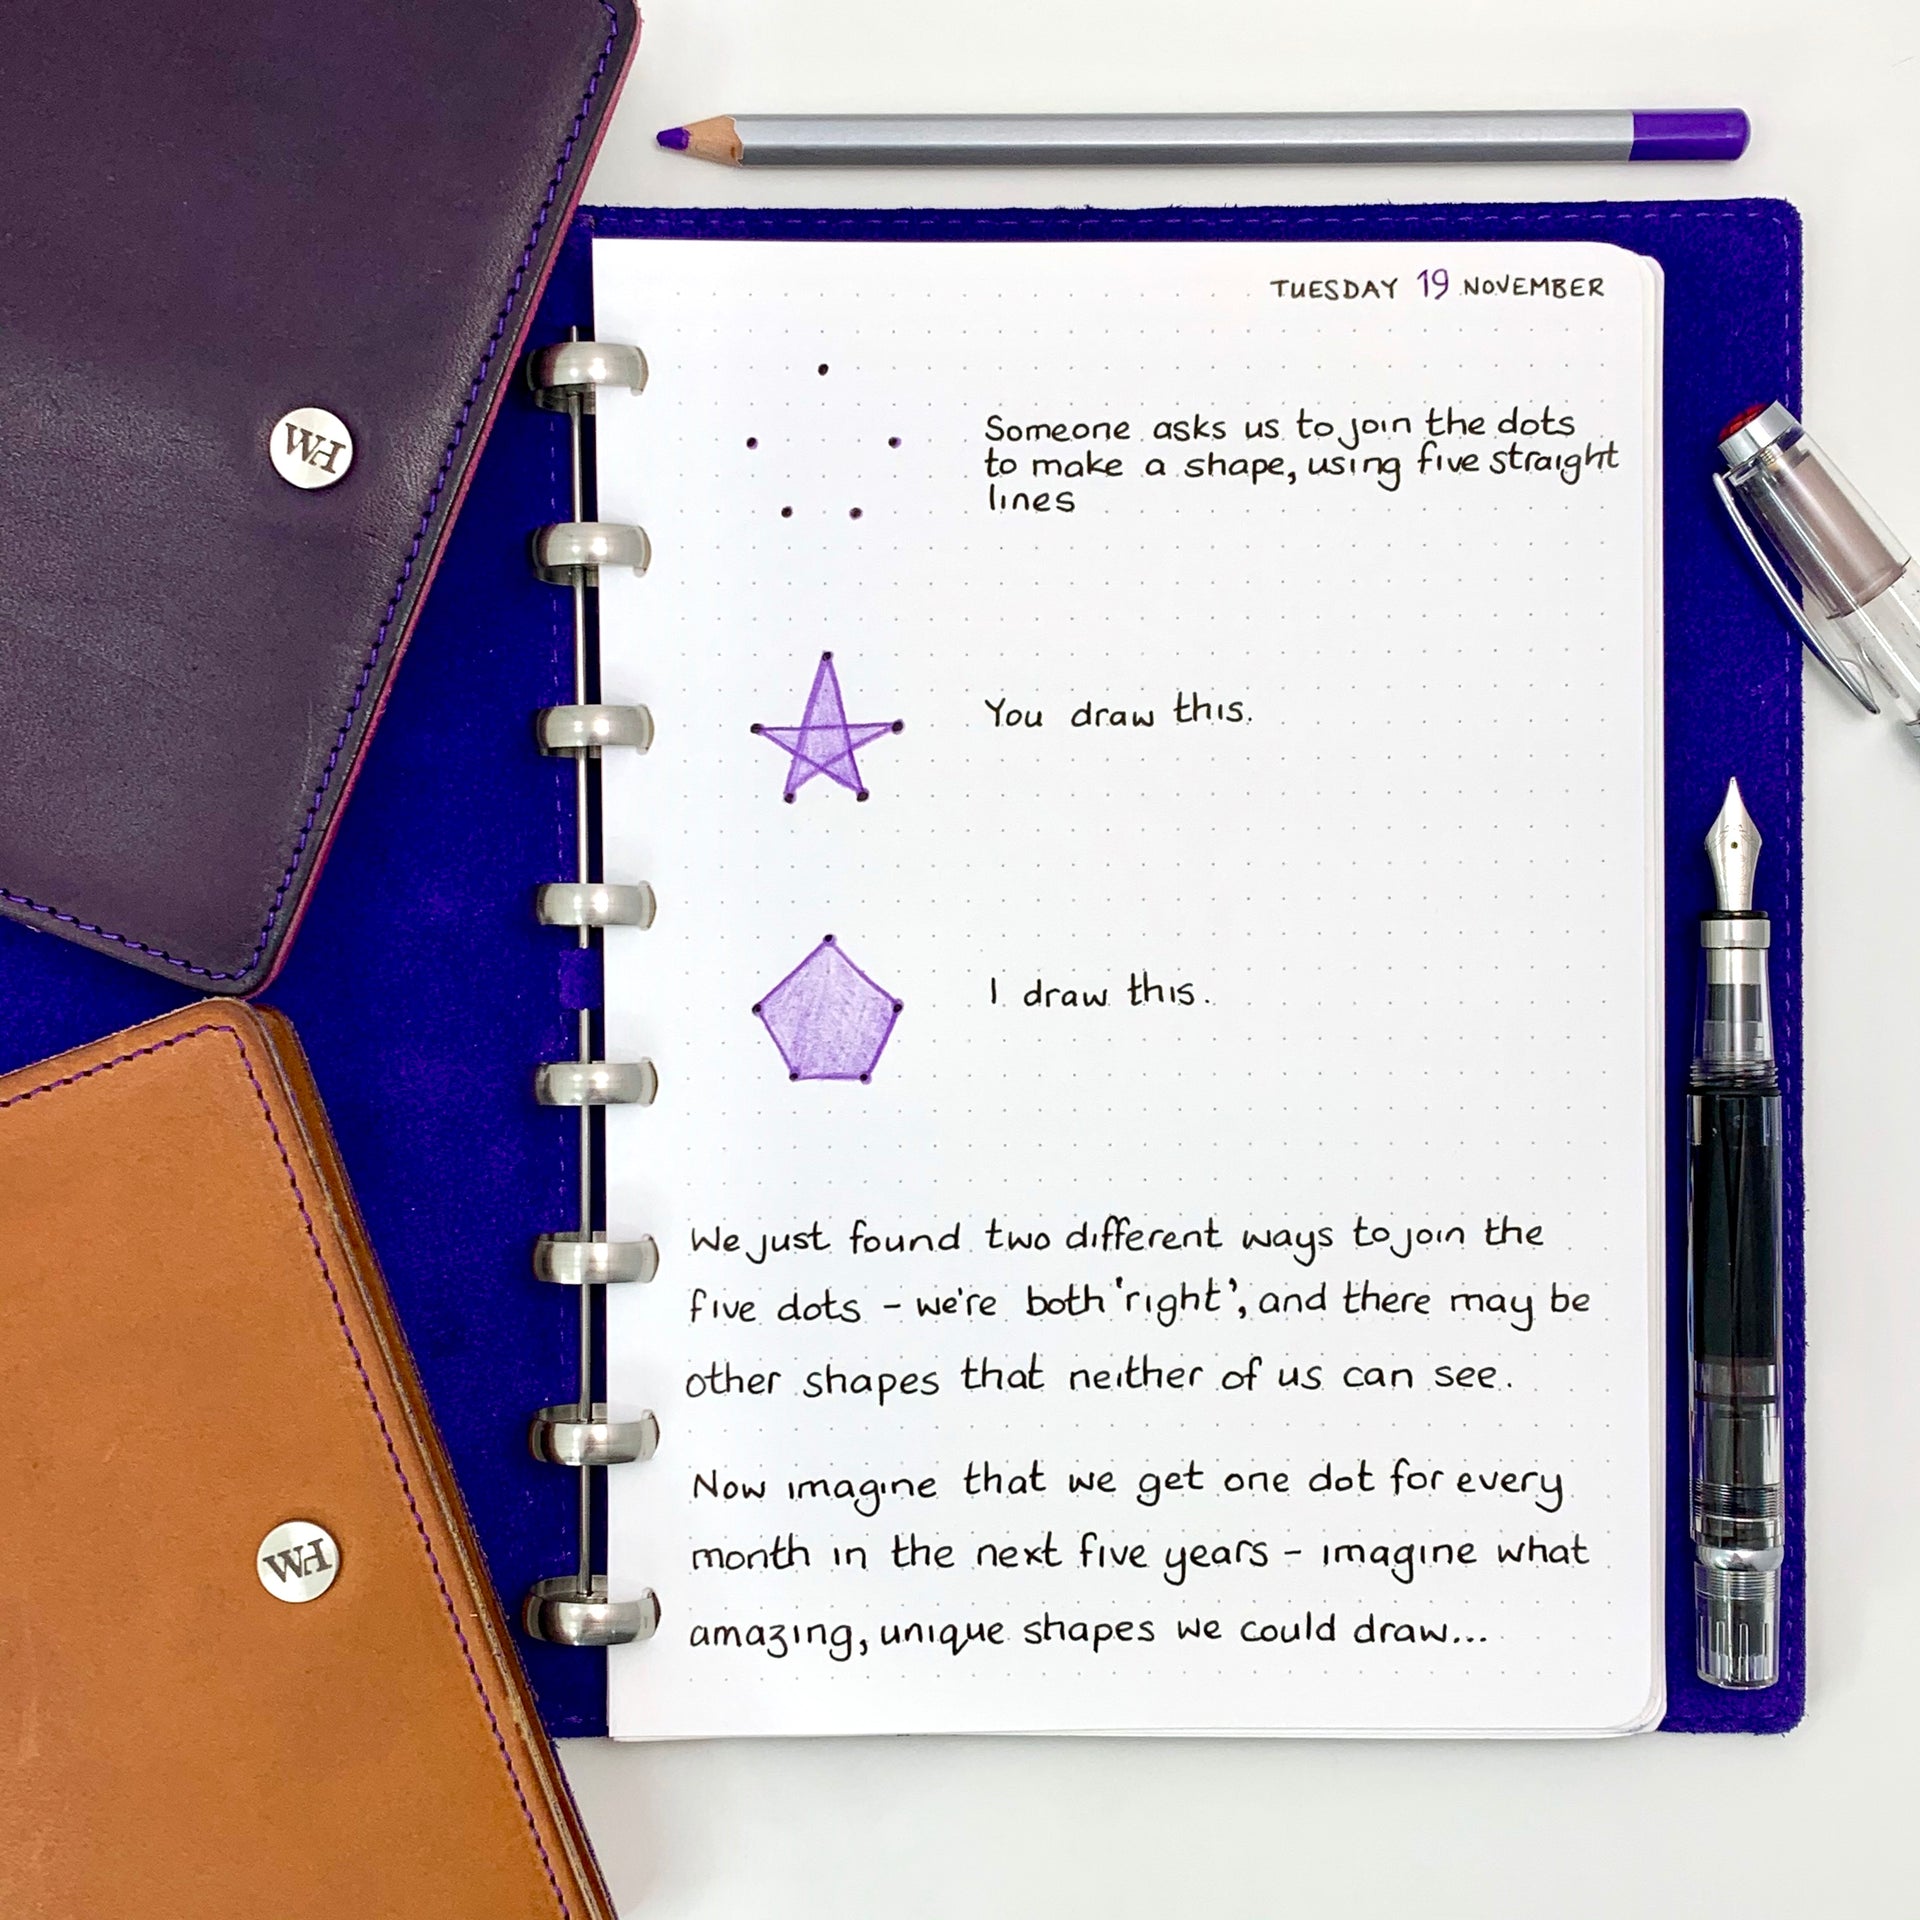 TUESDAY 19 NOVEMBER
Someone asks us to join the dots
to make a shape, using five straight
lines
You draw this.
I draw this.
We just found two different ways to join the
five dots – we're both 'right', and there may be
other shapes that neither of us can see.
Now imagine that we get one dot for every
month in the next five years – imagine what
amazing, unique shapes we could draw...
WH
WH